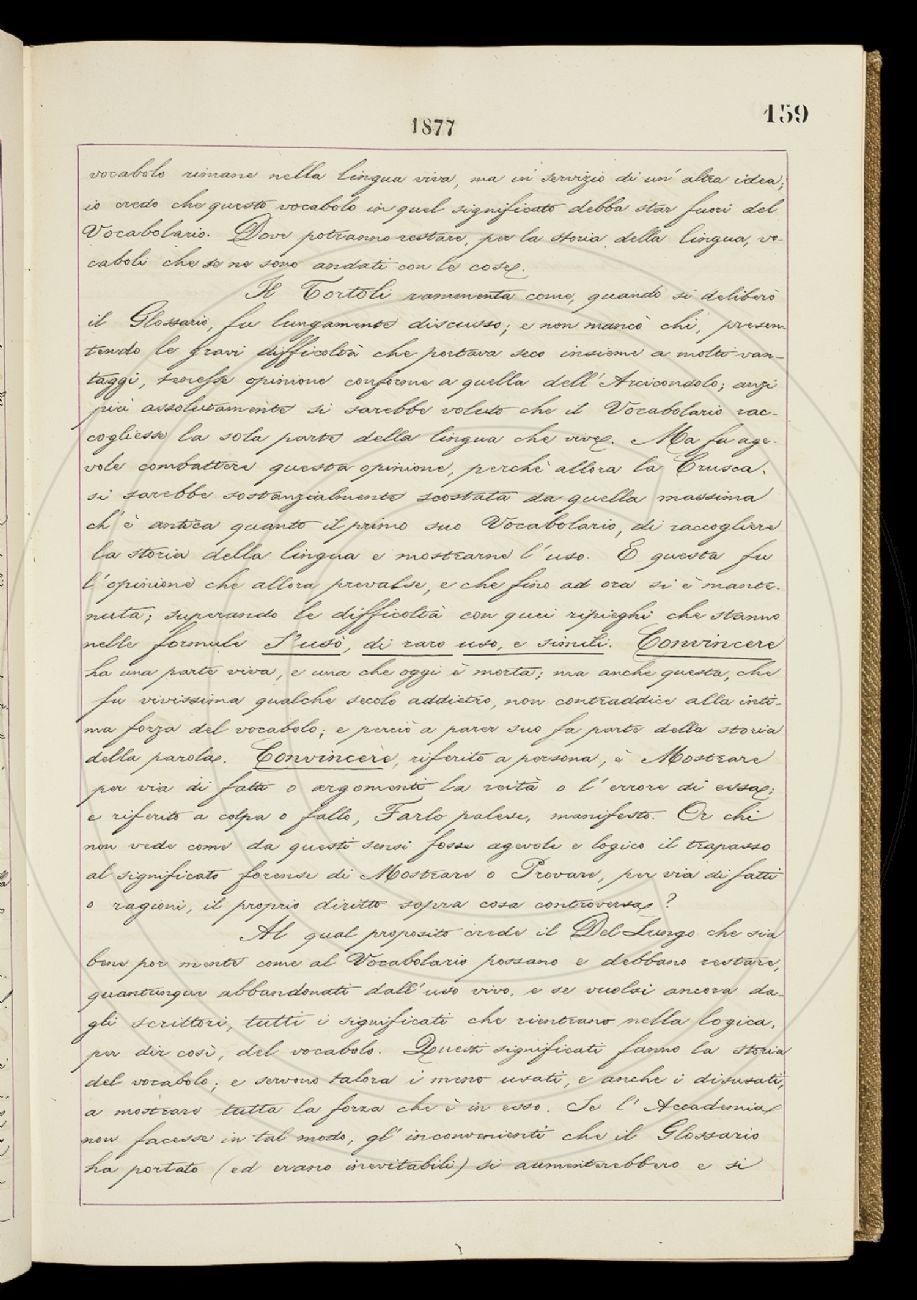 1877
159
vocabolo rimane nella lingua viva, ma in servizio di un' altra idea;
io credo che questo vocabolo in quel significato debba star fuori del
Vocabolario. Dove potranno restare, per la storia della lingua, vo-
caboli che se ne sono andati con le cose.
Il Tortoli rammenta come, quando si deliberò
il Glossario, fu lungamente discusso; e non mancò chi, presen-
tendo le gravi difficoltà che portava seco insieme a molti van-
taggi, tenesse opinione conforme a quella dell' Arciconsolo; anzi
più assolutamente si sarebbe voluto che il Vocabolario rac-
cogliesse la sola parte della lingua che vive. Ma fu age-
vole combattere questa opinione, perchè allora la Crusca
si sarebbe sostanzialmente scostata da quella massima
ch' è antica quanto il primo suo Vocabolario, di raccogliere
la storia della lingua e mostrarne l' uso. E questa fu
l' opinione che allora prevalse, e che fino ad ora si è mante-
nuta; superando le difficoltà con quei ripieghi che stanno
nelle formule S' usò, di raro uso, e simili. Convincere
ha una parte viva, e una che oggi è morta; ma anche questa, che
fu vivissima qualche secolo addietro, non contraddice alla inti-
ma forza del vocabolo; e perciò a parer suo fa parte della storia
della parola. Convincere, riferito a persona, è Mostrare
per via di fatto o argomenti la reità o l' errore di essa;
e riferito a colpa o fallo, Farlo palese, manifesto. Or chi
non vede come da questi sensi fosse agevole e logico il trapasso
al significato forense di Mostrare o Provare, per via di fatti
o ragioni, il proprio diritto sopra cosa controversa?
Al qual proposito crede il Del Lungo che sia
bene por mente come al Vocabolario possano e debbano restare,
quantunque abbandonati dall' uso vivo, e se vuolsi ancora da-
gli scrittori, tutti i significati che rientrano nella logica,
per dir così, del vocabolo. Questi significati fanno la storia
del vocabolo; e servono talora i meno usati, e anche i disusati,
a mostrare tutta la forza che è in esso. Se l' Accademia
non facesse in tal modo, gl' inconvenienti che il Glossario
ha portato (ed erano inevitabili) si aumenterebbero e si